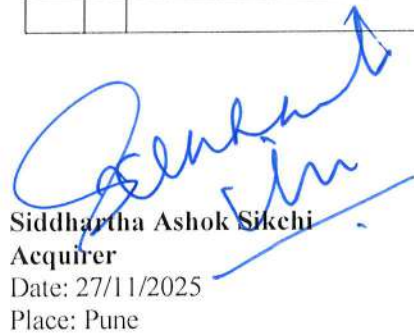 Siddhartha Ashok Sikchi
Acquirer
Date: 27/11/2025
Place: Pune